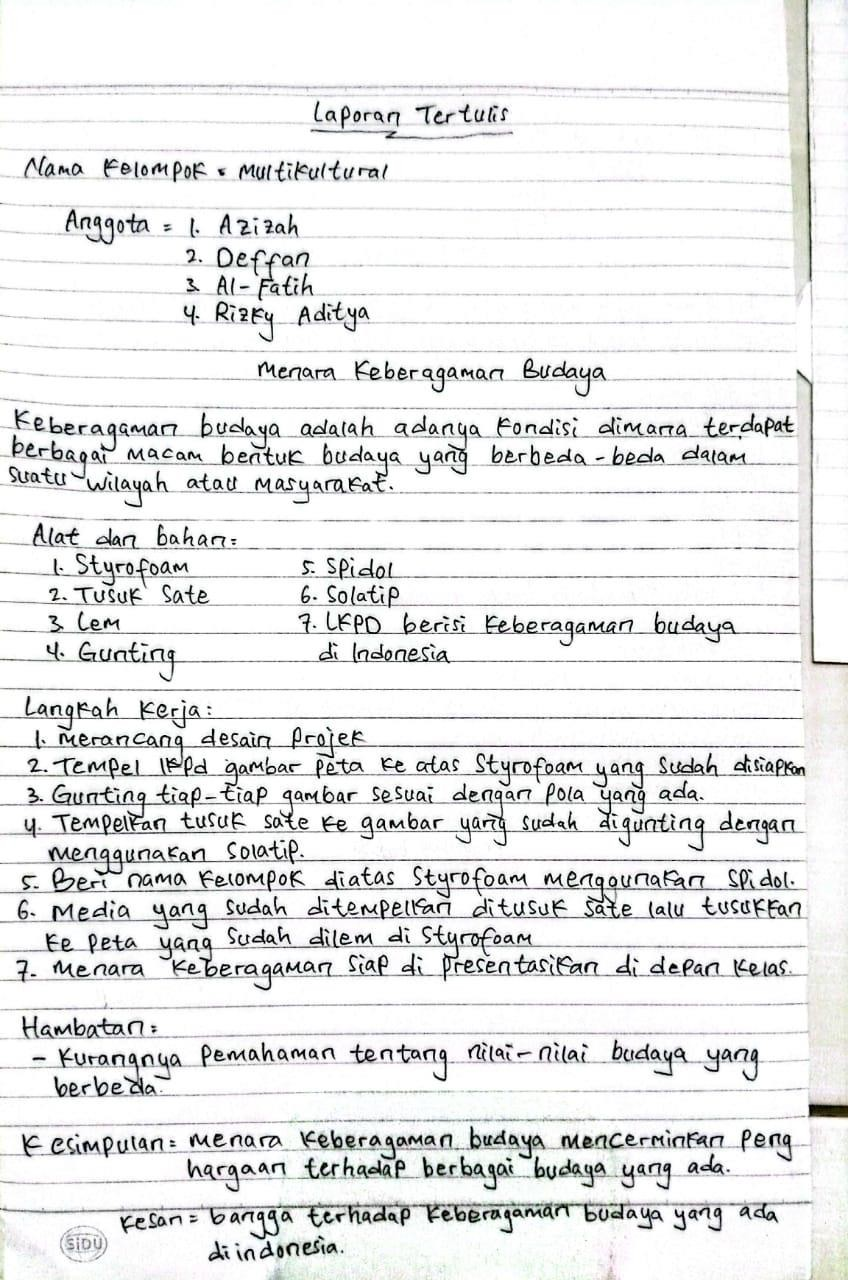 Laporan Tertulis
Nama Kelompok = Multikultural
Anggota = 1. Azizah
2. Deffan
3. Al-Fatih
4. Rizky Aditya
Menara Keberagaman Budaya
Keberagaman budaya adalah adanya kondisi dimana terdapat
berbagai macam bentuk budaya yang berbeda-beda dalam
suatu wilayah atau masyarakat.
Alat dan bahan:
1. Styrofoam 5. Spidol
2. Tusuk Sate 6. Solatip
3. Lem 7. LKPD berisi keberagaman budaya
4. Gunting di Indonesia
Langkah kerja:
1. Merancang desain projek
2. Tempel lkpd gambar peta ke atas Styrofoam yang sudah disiapkan
3. Gunting tiap-tiap gambar sesuai dengan pola yang ada.
4. Tempelkan tusuk sate ke gambar yang sudah digunting dengan
menggunakan solatip.
5. Beri nama kelompok diatas Styrofoam menggunakan spidol.
6. Media yang sudah ditempelkan ditusuk sate lalu tusukkan
ke peta yang sudah dilem di Styrofoam
7. Menara keberagaman siap di presentasikan di depan kelas.
Hambatan:
- Kurangnya pemahaman tentang nilai-nilai budaya yang
berbeda.
Kesimpulan = Menara keberagaman budaya mencerminkan peng
hargaan terhadap berbagai budaya yang ada.
Kesan = bangga terhadap keberagaman budaya yang ada
di indonesia.
SiDU